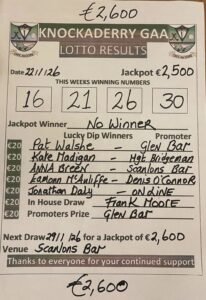 €2,600
KNOCKADERRY GAA
LOTTO RESULTS
Date 22/1/26 Jackpot €2,500
THIS WEEKS WINNING NUMBERS
16 21 26 30
Jackpot Winner No Winner
Lucky Dip Winners Promoter
€20 Pat Walshe - Glen Bar
€20 Kate Madigan - Mgt Bridgeman
€20 ANNA BREEN - Scanlons Bar
€20 Eamonn McAuliffe - Denis O'Connor
€20 Jonathan Daly - ONLINE
€20 In House Draw Frank Moore
€20 Promoters Prize Glen Bar
Next Draw 29/1/26 for a Jackpot of €2,600
Venue Scanlons Bar
Thanks to everyone for your continued support
€2,600